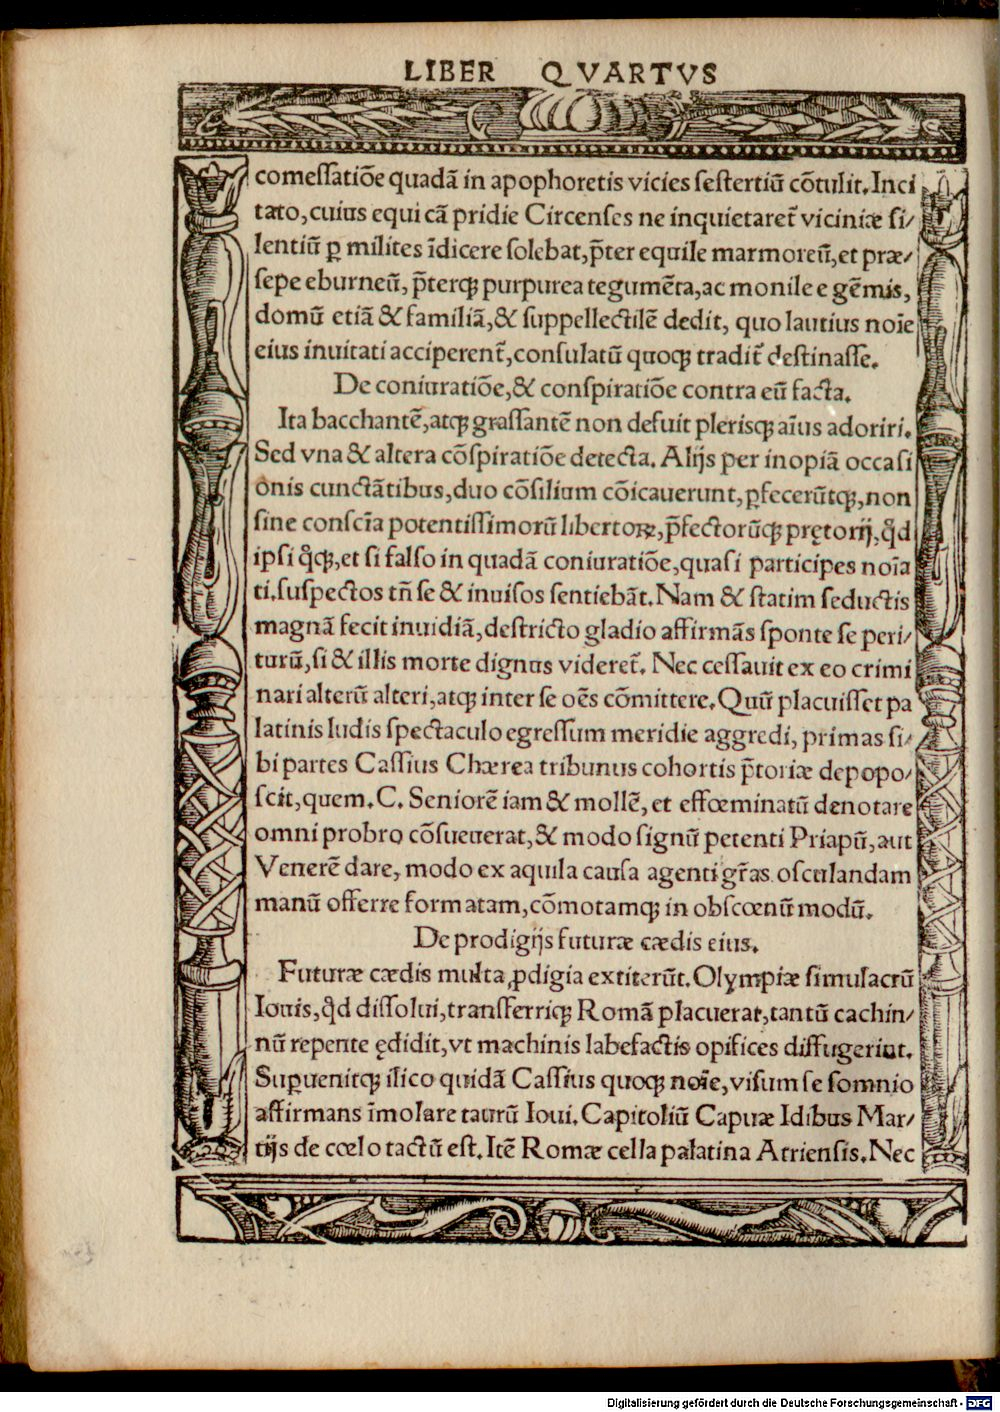 LIBER QVARTVS
comessatiōe quadā in apophoretis vicies sestertiū cōtulit. Inci
tato, cuius equi cā pridie Circenses ne inquietaret̄ viciniæ si/
lentiū ꝑ milites īdicere solebat, p̄ter equile marmoreū, et præ/
sepe eburneū, p̄terqꝫ purpurea tegumēta, ac monile e gēmis,
domū etiā & familiā, & suppellectilē dedit, quo lautius noīe
eius inuitati acciperent̄, consulatū quoqꝫ tradit̄ destinasse.
De coniuratiōe, & conspiratiōe contra eū facta.
Ita bacchantē, atqꝫ grassantē non defuit plerisqꝫ aīus adoriri.
Sed vna & altera cōspiratiōe detecta. Alijs per inopiā occasi
onis cunctātibus, duo cōsilium cōicauerunt, ꝑfecerūtqꝫ, non
sine consciā potentissimorū libertoꝝ, p̄fectorūqꝫ prętorij, ꝙd
ipsi q̊qꝫ, et si falso in quadā coniuratiōe, quasi participes noīa
ti. suspectos tn̄ se & inuisos sentiebāt. Nam & statim seductis
magnā fecit inuidiā, destricto gladio affirmās sponte se peri/
turū, si & illis morte dignus videret̄. Nec cessauit ex eo crimi
nari alterū alteri, atqꝫ inter se oēs cōmittere. Quū placuisset pa
latinis ludis spectaculo egressum meridie aggredi, primas si/
bi partes Cassius Chærea tribunus cohortis p̄toriæ depopo/
scit, quem. C. Seniorē iam & mollē, et effœminatū denotare
omni probro cōsueuerat, & modo signū petenti Priapū, aut
Venerē dare, modo ex aquila causa agenti gr̄as osculandam
manū offerre formatam, cōmotamqꝫ in obscœnū modū.
De prodigijs futuræ cædis eius.
Futuræ cædis multa ꝓdigia extiterūt. Olympiæ simulacrū
Iouis, ꝙd dissolui, transferriqꝫ Romā placuerat, tantū cachin/
nū repente ędidit, vt machinis labefactis opifices diffugerint.
Suꝑuenitqꝫ ilico quidā Cassius quoqꝫ noīe, visum se somnio
affirmans īmolare taurū Ioui. Capitoliū Capuæ Idibus Mar/
tijs de cœlo tactū est. Itē Romæ cella palatina Atriensis. Nec
Digitalisierung gefördert durch die Deutsche Forschungsgemeinschaft - DFG